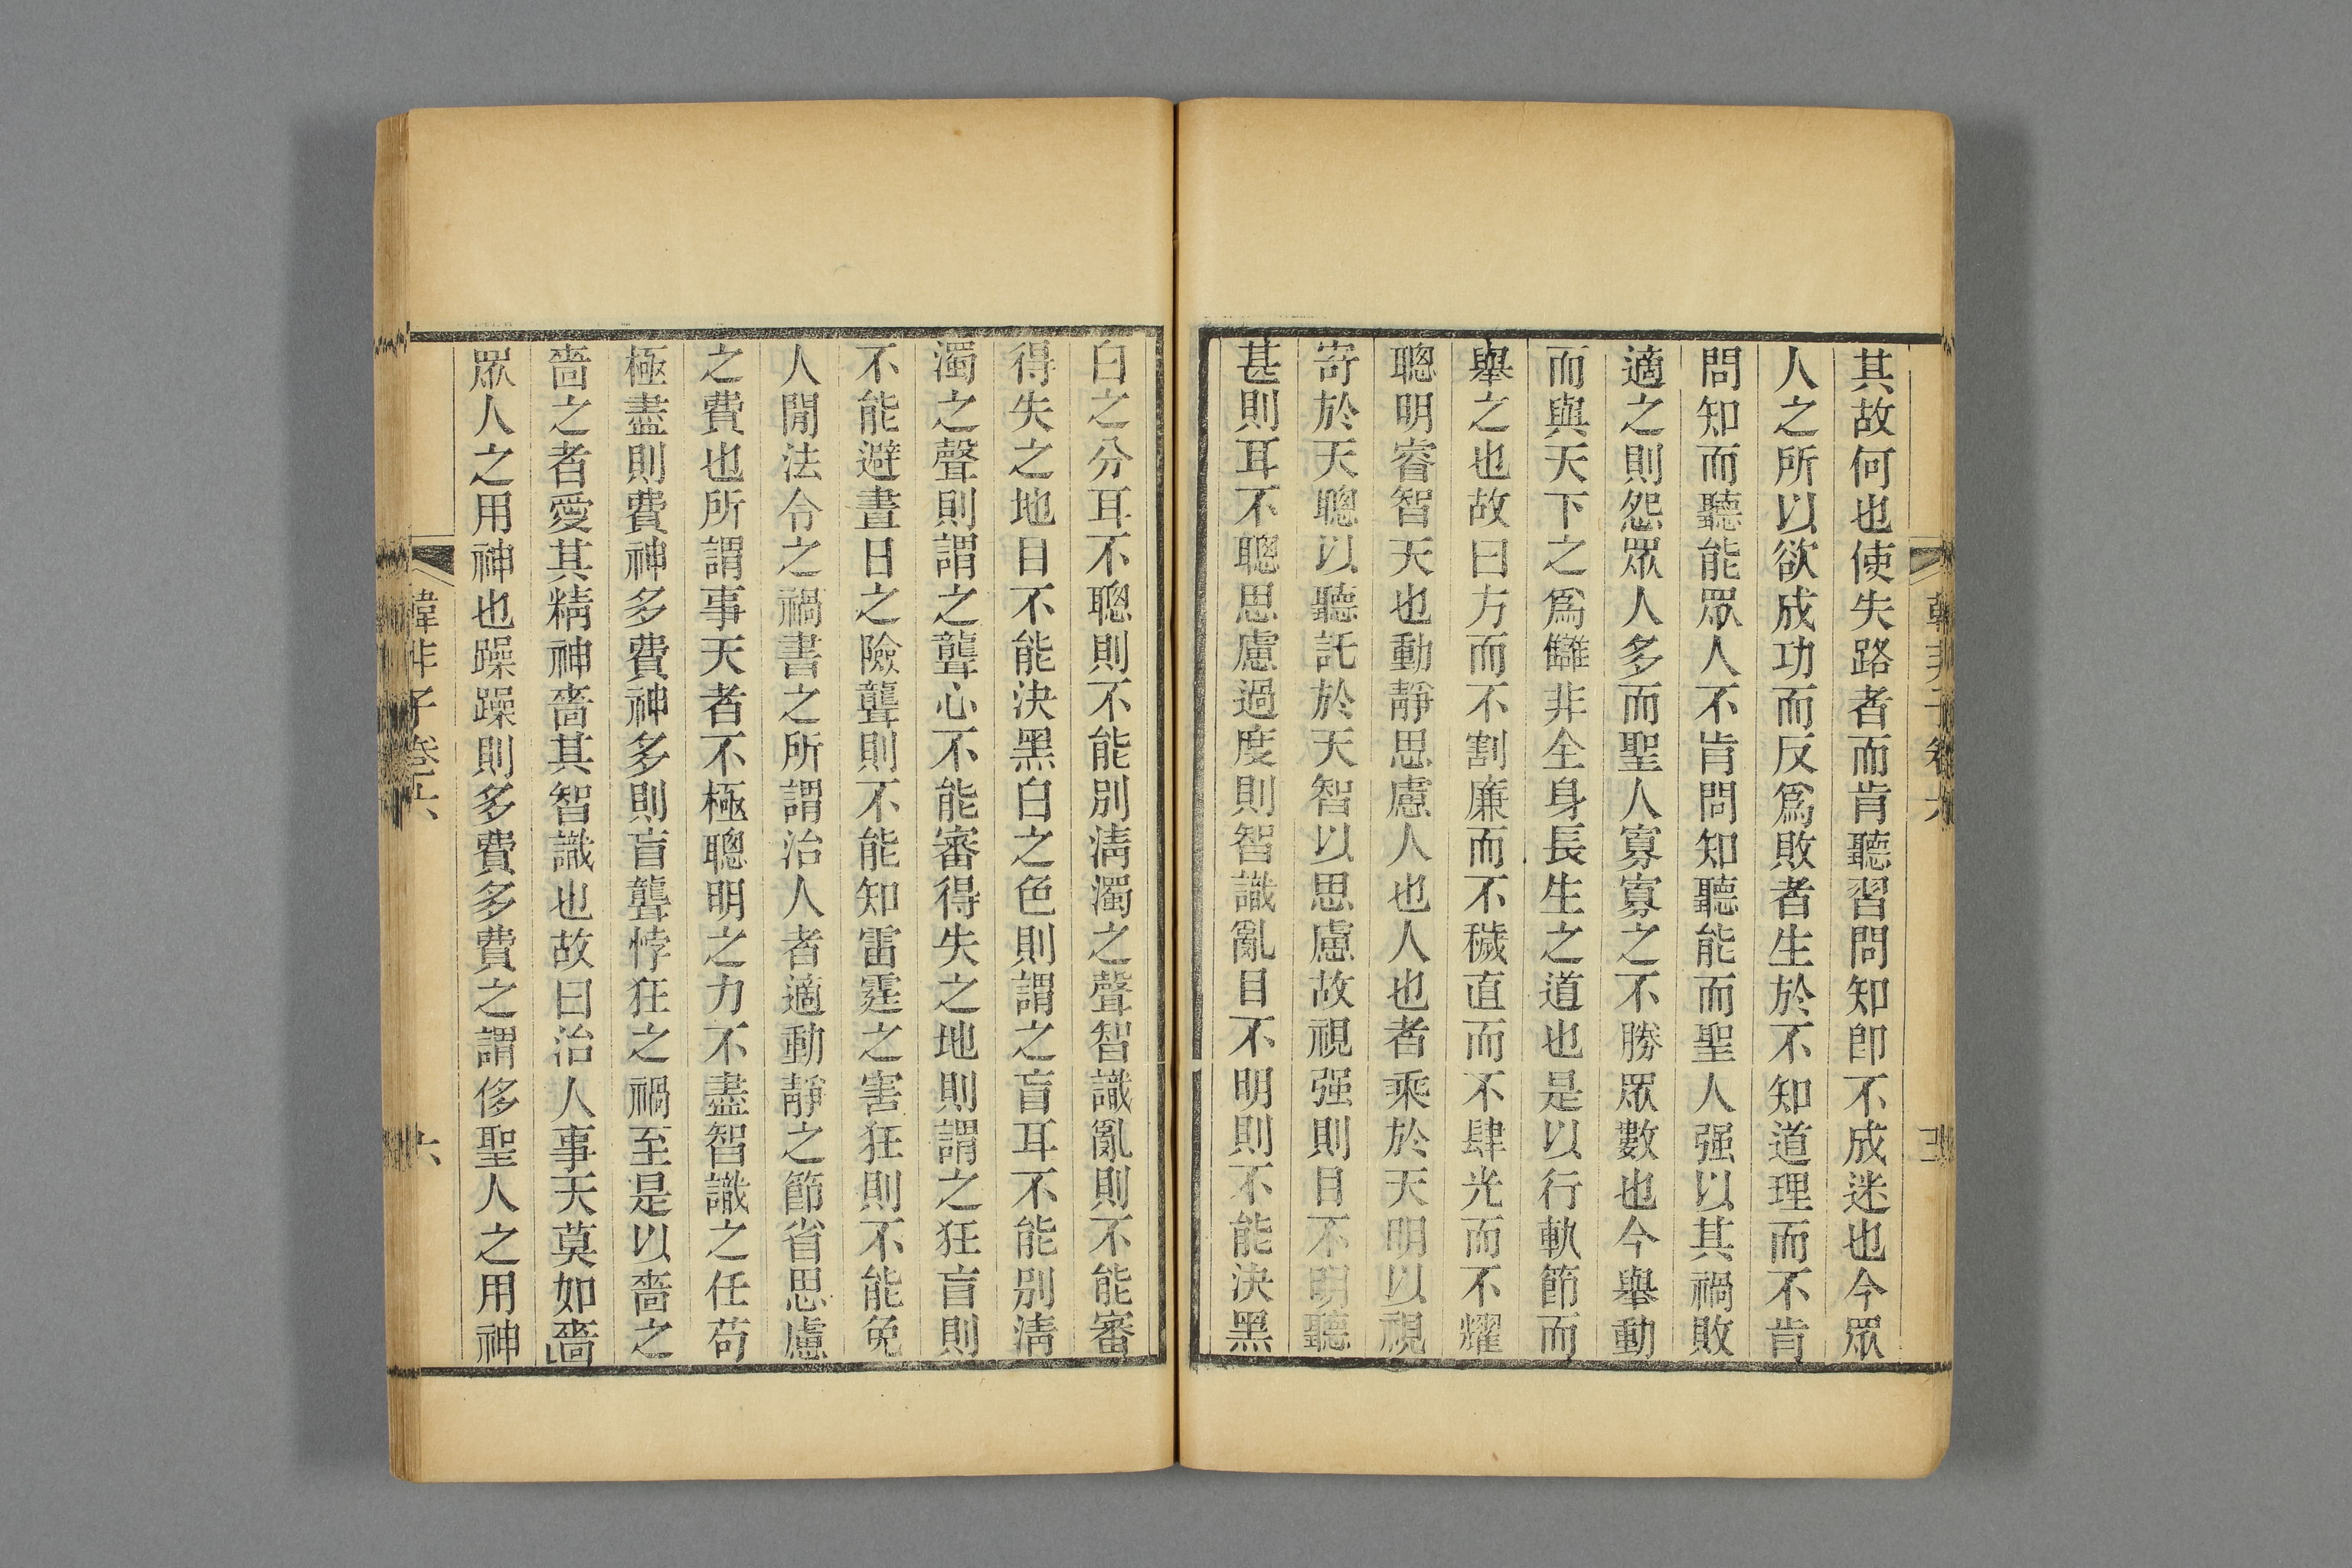 其故何也使失路者而肯聽習問知卽不成迷也今眾
人之所以欲成功而反爲敗者生於不知道理而不肯
問知而聽能眾人不肯問知聽能而聖人强以其禍敗
適之則怨眾人多而聖人寡寡之不勝眾數也今舉動
而與天下之爲讎非全身長生之道也是以行軌節而
舉之也故曰方而不割廉而不穢直而不肆光而不耀
聰明睿智天也動靜思慮人也人也者乘於天明以視
寄於天聰以聽託於天智以思慮故視强則目不明聽
甚則耳不聰思慮過度則智識亂目不明則不能決黑
白之分耳不聰則不能別淸濁之聲智識亂則不能審
得失之地目不能決黑白之色則謂之盲耳不能別淸
濁之聲則謂之聾心不能審得失之地則謂之狂盲則
不能避晝日之險聾則不能知雷霆之害狂則不能免
人閒法令之禍書之所謂治人者適動靜之節省思慮
之費也所謂事天者不極聰明之力不盡智識之任苟
極盡則費神多費神多則盲聾悖狂之禍至是以嗇之
嗇之者愛其精神嗇其智識也故曰治人事天莫如嗇
眾人之用神也躁躁則多費多費之謂侈聖人之用神
韓非子卷六